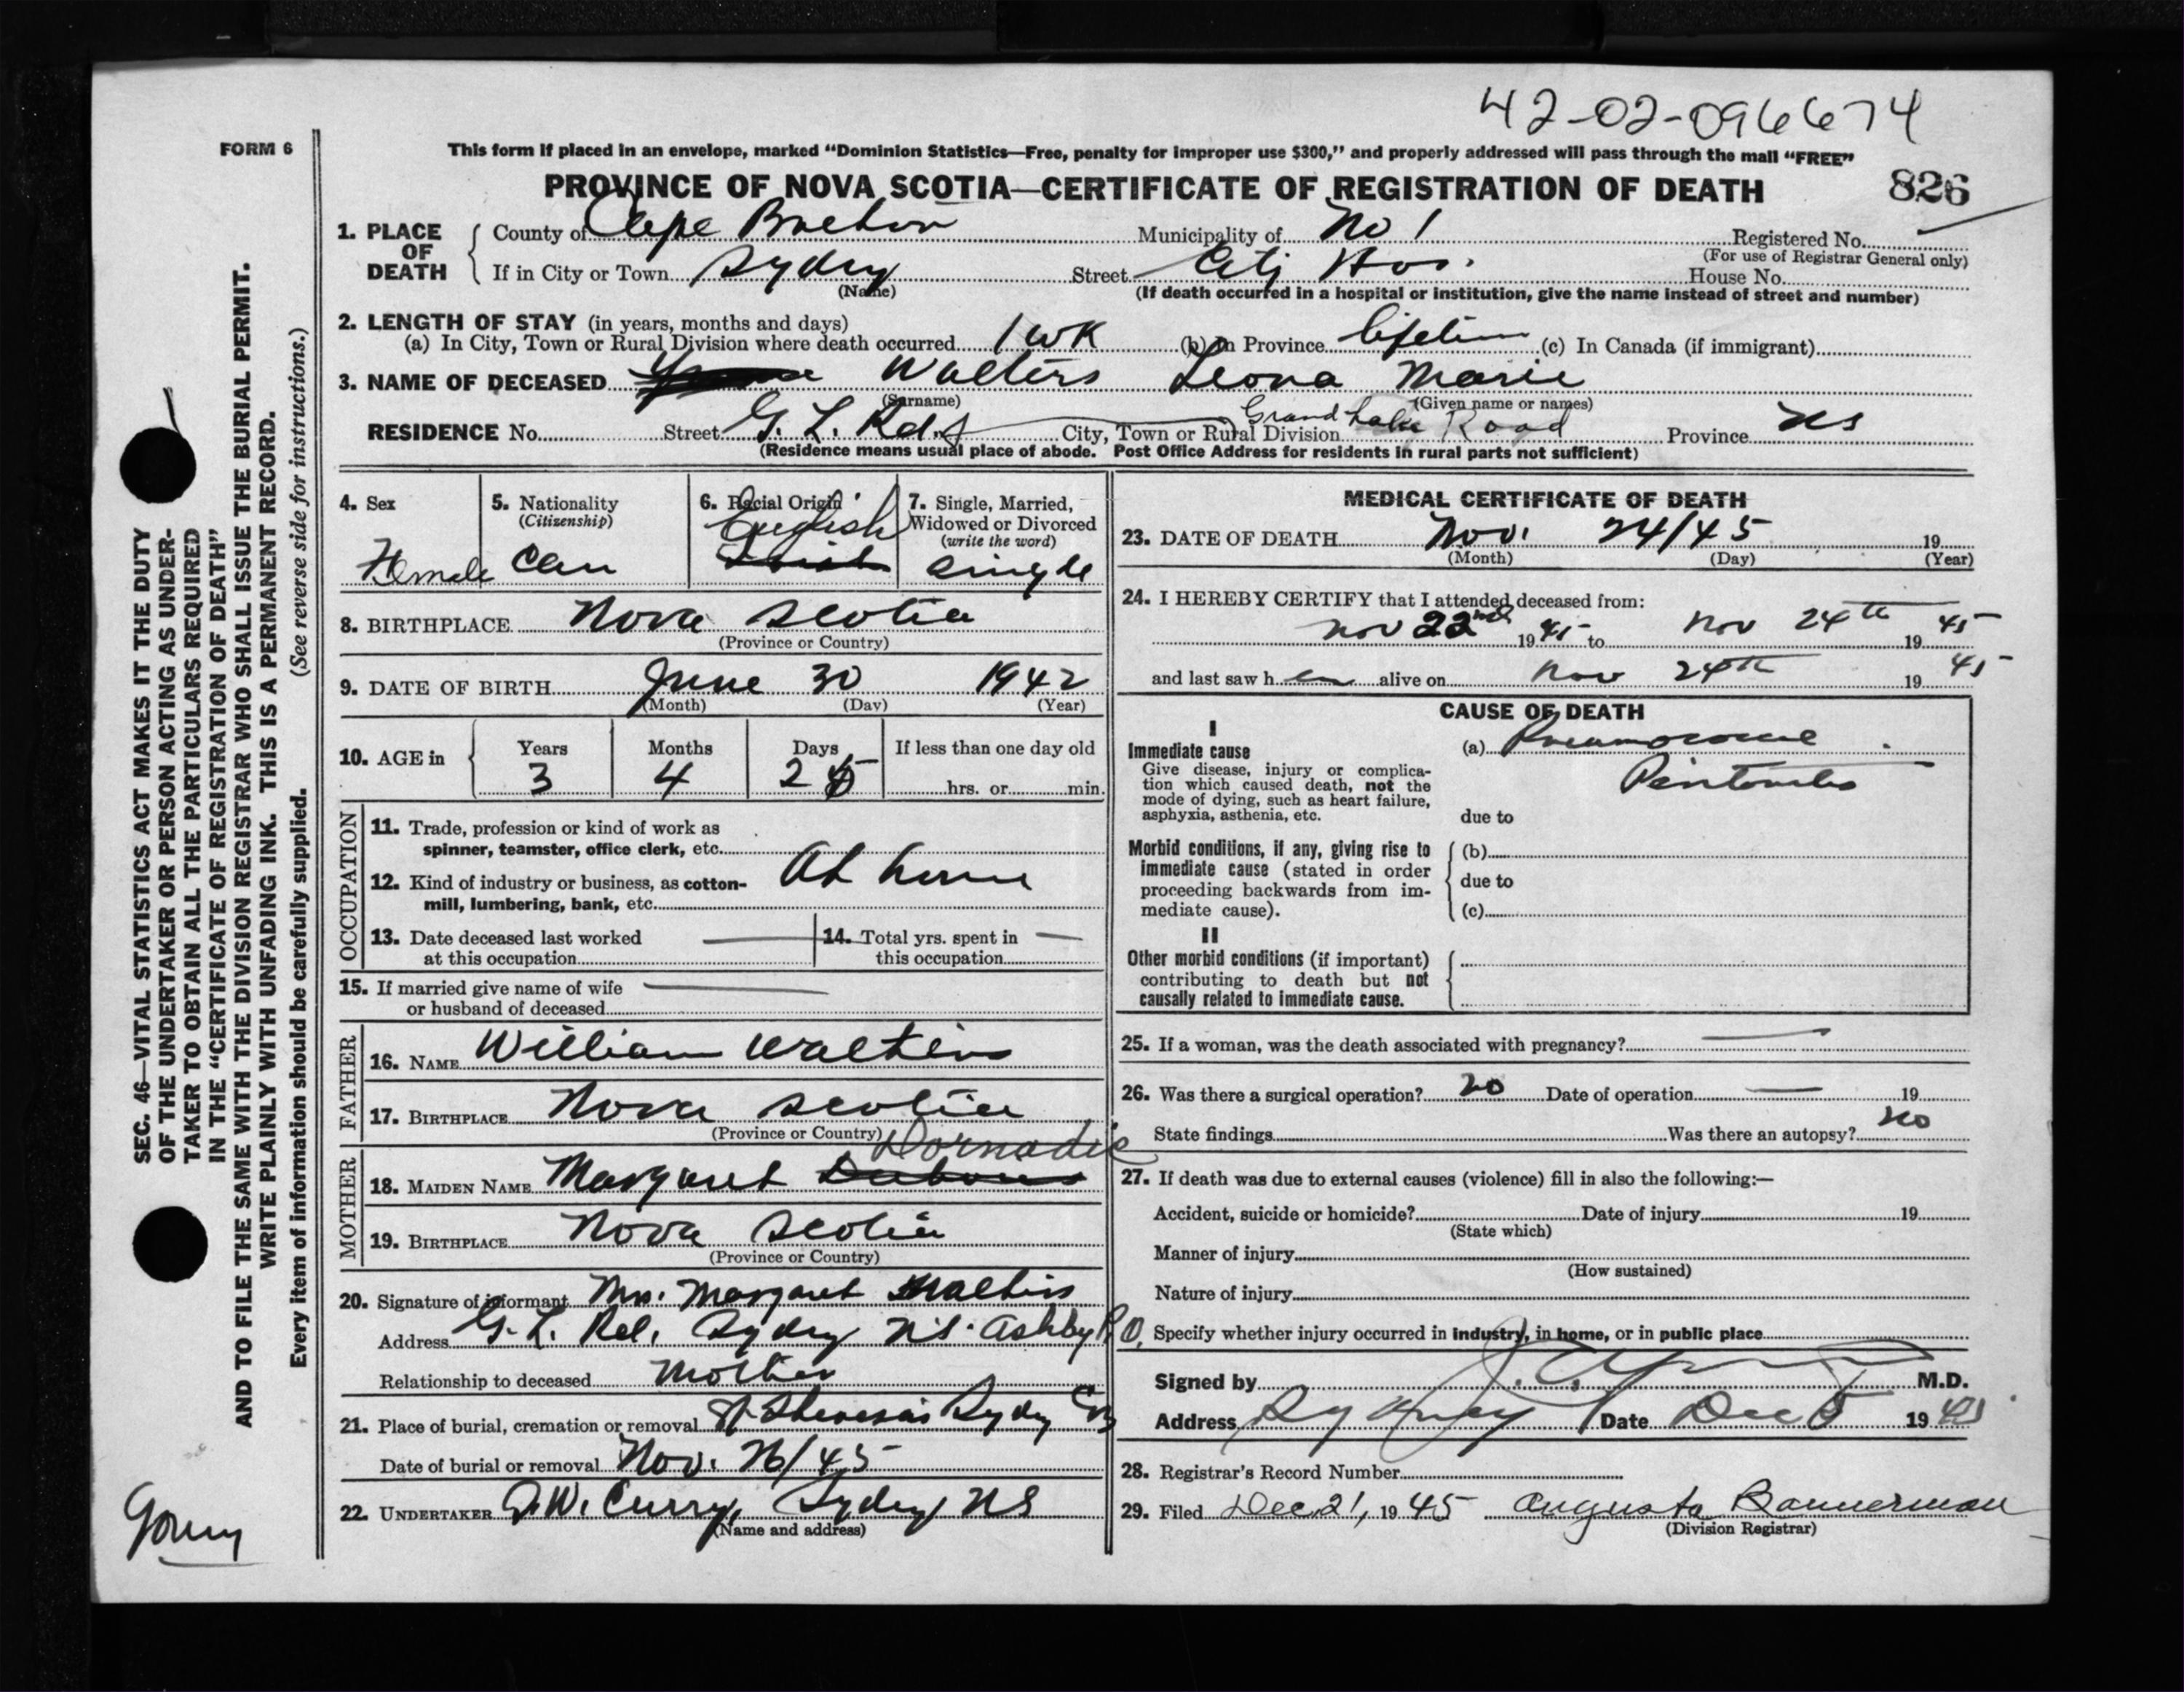 42-02-096674
FORM 6
This form if placed in an envelope, marked "Dominion Statistics—Free, penalty for improper use $300," and properly addressed will pass through the mail "FREE"
PROVINCE OF NOVA SCOTIA—CERTIFICATE OF REGISTRATION OF DEATH 826
1. PLACE OF DEATH County of Cape Breton Municipality of No 1 Registered No.
(For use of Registrar General only)
If in City or Town Sydney Street City Hos. House No.
(Name) (If death occurred in a hospital or institution, give the name instead of street and number)
2. LENGTH OF STAY (in years, months and days)
(a) In City, Town or Rural Division where death occurred 1 wk (b) In Province lifetime (c) In Canada (if immigrant)
3. NAME OF DECEASED Walters Leona Marie
(Surname) (Given name or names)
RESIDENCE No. Street G. L. Rd. City, Town or Rural Division Grand Lake Road Province NS
(Residence means usual place of abode. Post Office Address for residents in rural parts not sufficient)
4. Sex 5. Nationality 6. Racial Origin 7. Single, Married,
(Citizenship) English Widowed or Divorced
(write the word)
Female Can single
8. BIRTHPLACE Nova Scotia
(Province or Country)
9. DATE OF BIRTH June 30 1942
(Month) (Day) (Year)
10. AGE in Years Months Days If less than one day old
3 4 25 hrs. or min.
OCCUPATION
11. Trade, profession or kind of work as
spinner, teamster, office clerk, etc.
12. Kind of industry or business, as cotton- At home
mill, lumbering, bank, etc.
13. Date deceased last worked — 14. Total yrs. spent in —
at this occupation this occupation
15. If married give name of wife —
or husband of deceased
FATHER
16. NAME William Walters
17. BIRTHPLACE Nova Scotia
(Province or Country)
MOTHER
Dornadic
18. MAIDEN NAME Margaret
19. BIRTHPLACE Nova Scotia
(Province or Country)
20. Signature of informant Mrs. Margaret Walters
Address G. L. Rd. Sydney N.S. Ashby P.O.
Relationship to deceased Mother
21. Place of burial, cremation or removal St Theresa's Sydney CB
Date of burial or removal Nov. 26/45
22. UNDERTAKER J.W. Curry, Sydney NS
(Name and address)
MEDICAL CERTIFICATE OF DEATH
23. DATE OF DEATH Nov. 24/45 19
(Month) (Day) (Year)
24. I HEREBY CERTIFY that I attended deceased from:
Nov 22nd 1945 to Nov 24th 19 45
and last saw h er alive on Nov 24th 19 45
CAUSE OF DEATH
I
Immediate cause (a)
Give disease, injury or complica-
tion which caused death, not the
mode of dying, such as heart failure,
asphyxia, asthenia, etc. due to
Morbid conditions, if any, giving rise to (b)
immediate cause (stated in order due to
proceeding backwards from im-
mediate cause). (c)
II
Other morbid conditions (if important)
contributing to death but not
causally related to immediate cause.
25. If a woman, was the death associated with pregnancy? —
26. Was there a surgical operation? no Date of operation — 19
State findings Was there an autopsy? no
27. If death was due to external causes (violence) fill in also the following:—
Accident, suicide or homicide? Date of injury 19
(State which)
Manner of injury
(How sustained)
Nature of injury
Specify whether injury occurred in industry, in home, or in public place
Signed by M.D.
Address Sydney Date Dec 5 19 45
28. Registrar's Record Number
29. Filed Dec. 21, 19 45 Augusta Bannerman
(Division Registrar)
SEC. 46—VITAL STATISTICS ACT MAKES IT THE DUTY
OF THE UNDERTAKER OR PERSON ACTING AS UNDER-
TAKER TO OBTAIN ALL THE PARTICULARS REQUIRED
IN THE "CERTIFICATE OF REGISTRATION OF DEATH"
AND TO FILE THE SAME WITH THE DIVISION REGISTRAR WHO SHALL ISSUE THE BURIAL PERMIT.
WRITE PLAINLY WITH UNFADING INK. THIS IS A PERMANENT RECORD.
Every item of information should be carefully supplied. (See reverse side for instructions.)